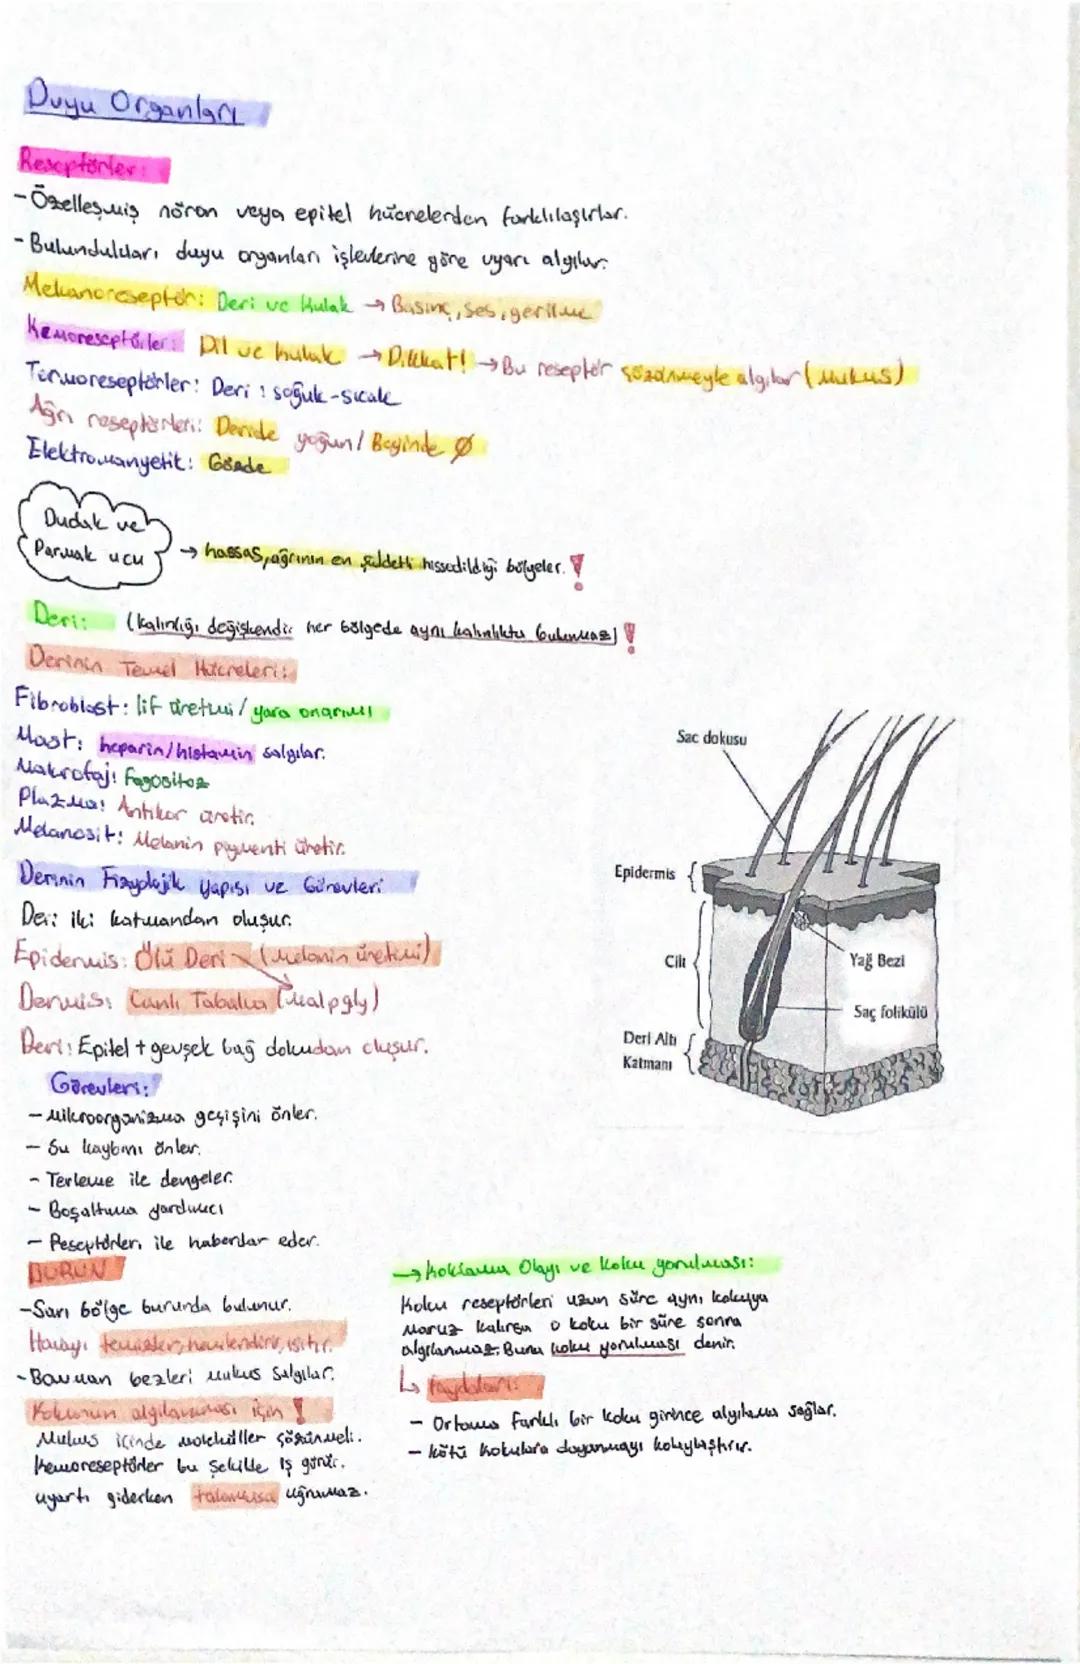 Duyu Organları
Reseptörler:
- Özelleşmiş nöron veya epitel hücrelerden farklılaşırlar.
- Bulundukları duyu organları işlevlerine göre uyarı algılar.
Mekanoreseptör: Deri ve Kulak → Basınç, ses, gerilme
Kemoreseptörler: Dil ve kulak → Dikkat! → Bu reseptör çözünmeyle algılar (Mukus)
Termoreseptörler: Deri : soğuk-sıcak
Ağrı reseptörleri: Deride yoğun / Beyinde Ø
Elektromanyetik: Gözde
Dudak ve
Parmak ucu → hassas, ağrının en şiddetli hissedildiği bölgeler. !
Deri: (kalınlığı değişkendir her bölgede aynı kalınlıkta bulunmaz) !
Derinin Temel Hücreleri:
Fibroblast: lif üretimi / yara onarımı
Mast: heparin/histamin salgılar.
Makrofaj: Fagositoz
Plazma: Antikor üretir.
Melanosit: Melanin pigmenti üretir.
Sac dokusu
Epidermis
Cilt
Yağ Bezi
Saç folikülü
Deri Altı
Katmanı
Derinin Fizyolojik yapısı ve Görevleri
Deri iki katmandan oluşur.
Epidermis: Ölü Deri (melanin üretimi)
Dermis: Canlı Tabaka (malpgly)
Deri: Epitel + gevşek bağ dokudan oluşur.
Görevleri:
- Mikroorganizma geçişini önler.
- Su kaybını önler.
- Terleme ile dengeler.
- Boşaltıma yardımcı
- Reseptörleri ile haberdar eder.
BURUN
- Sarı bölge burunda bulunur.
Havayı temizler, nemlendirir, ısıtır.
- Bowman bezleri mukus salgılar.
Kokunun algılanması için !
Mukus içinde moleküller çözünmeli.
Kemoreseptörler bu şekilde iş görür.
uyartı giderken talamusa uğramaz.
→ Koklama Olayı ve Koku yorulması:
Koku reseptörleri uzun süre aynı kokuya
maruz kalırsa o koku bir süre sonra
algılanmaz. Buna koku yorulması denir.
↳ Faydaları:
- Ortama farklı bir koku girince algılama sağlar.
- kötü kokulara dayanmayı kolaylaştırır.